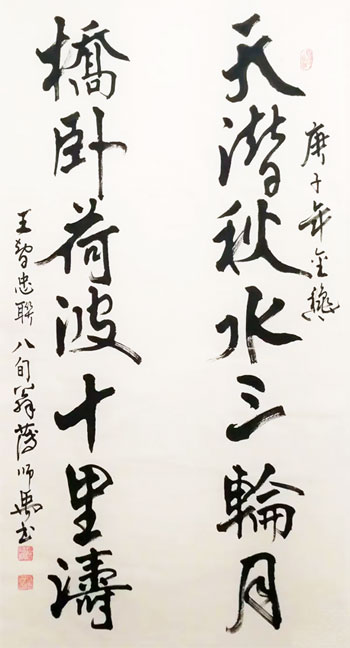 庚子年金穐
天潛秋水三輪月
橋卧荷波十里濤
王智忠聯 八旬翁 師 书